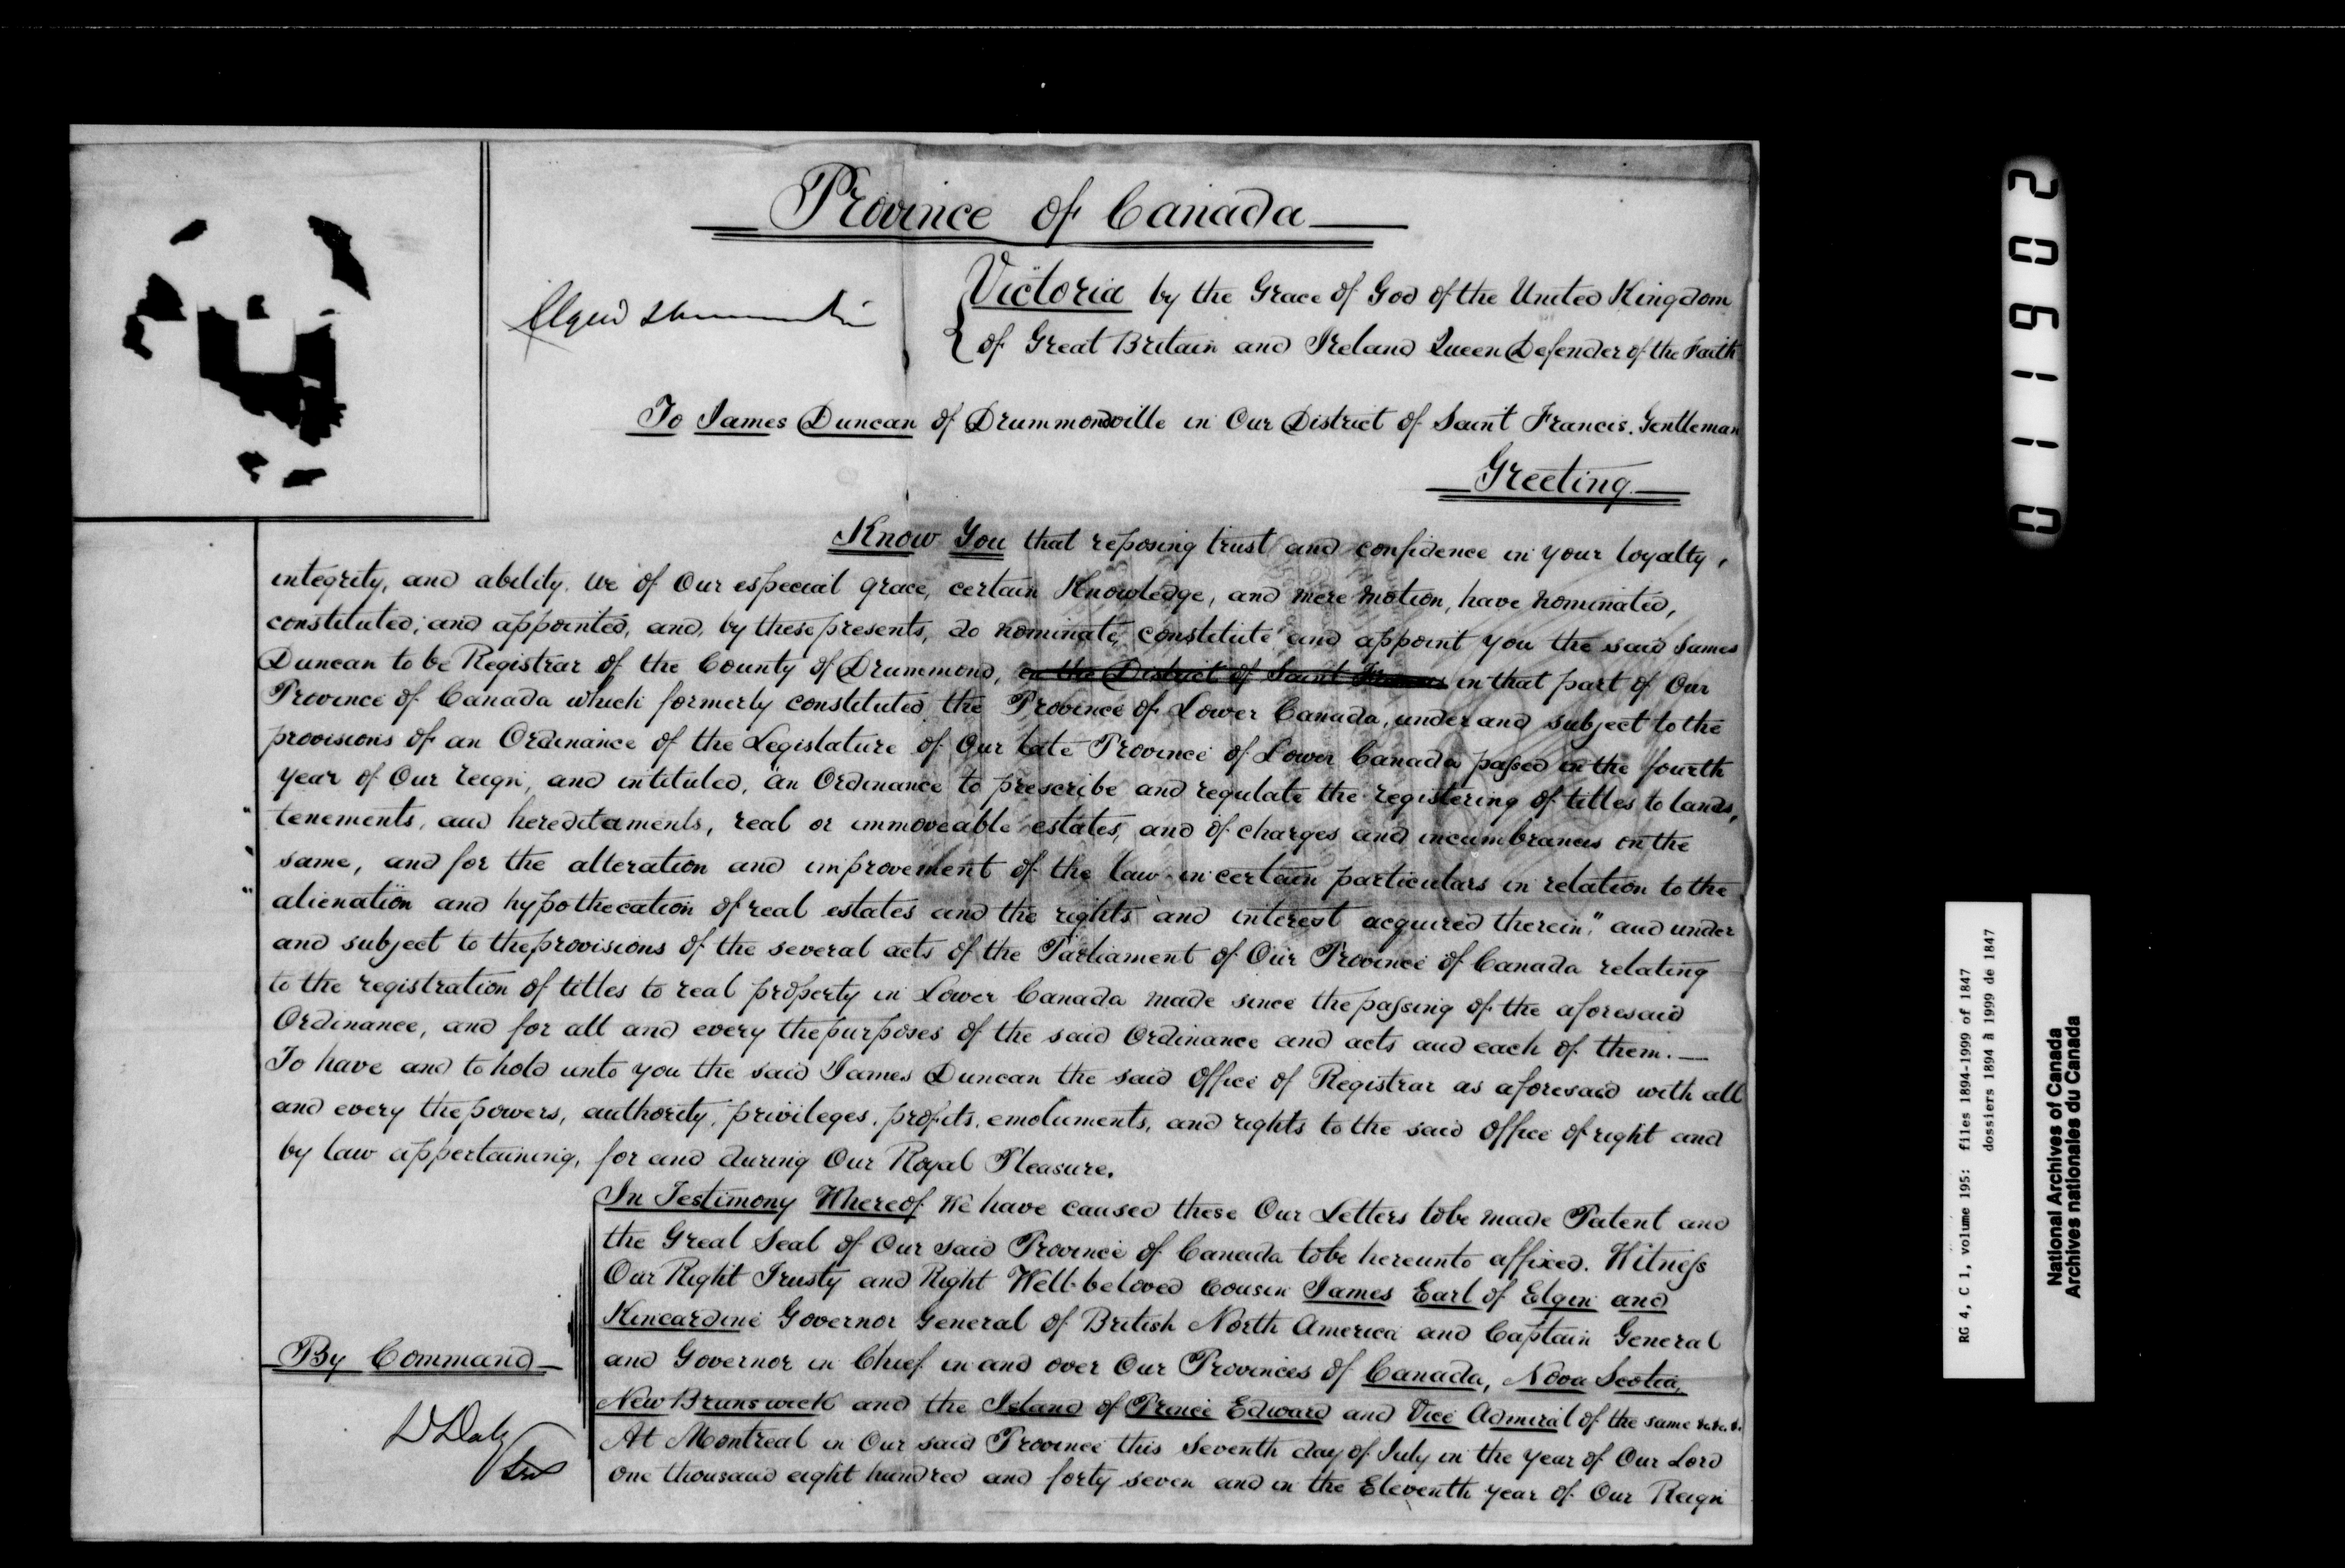 Province of Canada
Elgin & Kincardine
Victoria by the Grace of God of the United Kingdom
of Great Britain and Ireland Queen Defender of the Faith
To James Duncan of Drummondville in Our District of Saint Francis. Gentleman
Greeting
Know You that reposing trust and confidence in your loyalty,
integrity, and ability. We of Our especial grace, certain Knowledge, and mere motion, have nominated,
constituted, and appointed, and, by these presents, do nominate, constitute and appoint you the said James
Duncan to be Registrar of the County of Drummond, in the District of Saint Francis in that part of Our
Province of Canada which formerly constituted the Province of Lower Canada, under and subject to the
provisions of an Ordinance of the Legislature of Our late Province of Lower Canada passed in the fourth
year of Our reign, and intituled, "an Ordinance to prescribe and regulate the registering of titles to lands,
" tenements, and hereditaments, real or immoveable estates, and of charges and incumbrances on the
" same, and for the alteration and improvement of the law in certain particulars in relation to the
" alienation and hypothecation of real estates and the rights and interest acquired therein," and under
and subject to the provisions of the several acts of the Parliament of Our Province of Canada relating
to the registration of titles to real property in Lower Canada made since the passing of the aforesaid
Ordinance, and for all and every the purposes of the said Ordinance and acts and each of them.—
To have and to hold unto you the said James Duncan the said Office of Registrar as aforesaid with all
and every the powers, authority, privileges, profits, emoluments, and rights to the said Office of right and
by law appertaining, for and during Our Royal Pleasure.
In Testimony Whereof We have caused these Our Letters to be made Patent and
the Great Seal of Our said Province of Canada to be hereunto affixed. Witness
Our Right Trusty and Right Well-beloved Cousin James Earl of Elgin and
Kincardine Governor General of British North America and Captain General
and Governor in Chief in and over Our Provinces of Canada, Nova Scotia,
New Brunswick and the Island of Prince Edward and Vice Admiral of the same &c. &c. &c.
At Montreal in Our said Province this Seventh day of July in the year of Our Lord
One thousand eight hundred and forty seven and in the Eleventh year of Our Reign
By Command
D Daly
Sec
011602
RG 4, C 1, volume 195: files 1894-1999 of 1847
dossiers 1894 à 1999 de 1847
National Archives of Canada
Archives nationales du Canada